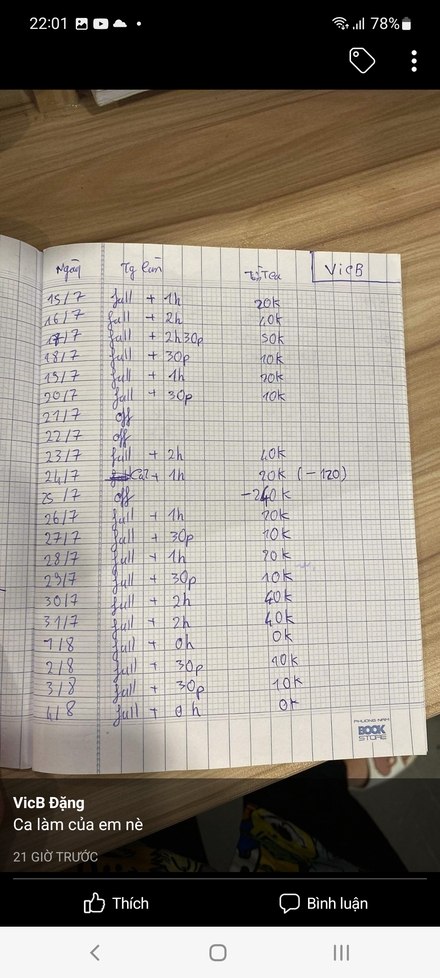 22:01
78%
Ngày Tg làm VicB
15/7 full + 1h 20k
16/7 full + 2h 40k
17/7 full + 2h30p 50k
18/7 full + 30p 10k
19/7 full + 1h 20k
20/7 full + 30p 10k
21/7 off
22/7 off
23/7 full + 2h 40k
24/7 + 1h 20k (-120)
25/7 off -240k
26/7 full + 1h 20k
27/7 full + 30p 10k
28/7 full + 1h 20k
29/7 full + 30p 10k
30/7 full + 2h 40k
31/7 full + 2h 40k
1/8 full + 0h 0k
2/8 full + 30p 10k
3/8 full + 30p 10k
4/8 full + 0h 0k
PHUONG NAM
BOOK
STORE
VicB Đặng
Ca làm của em nè
21 GIỜ TRƯỚC
Thích Bình luận